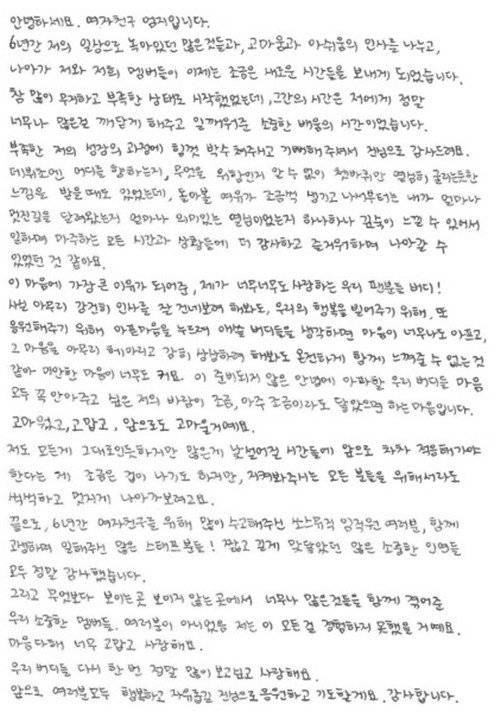 안녕하세요. 여자친구 엄지입니다.
6년간 저의 일상으로 녹아있던 많은것들과, 고마움과 아쉬움의 인사를 나누고,
나아가 저와 저희 멤버들이 이제는 조금은 새로운 시간들을 보내게 되었습니다.
참 많이 무지하고 부족한 상태로 시작했었는데, 그간의 시간은 저에게 정말
너무나 많은걸 깨닫게 해주고 일깨워준 소중한 배움의 시간이었습니다.
부족한 저의 성장의 과정에 힘껏 박수쳐주시고 기뻐해주셔서 진심으로 감사드려요.
데뷔초엔 어디를 향하는지, 무엇을 위함인지 알 수 없이 쳇바퀴만 열심히 굴리는듯한
느낌을 받을때도 있었는데, 돌아볼 여유가 조금씩 생기고 나서부터는 내가 얼마나
멋진길을 달려왔는지 얼마나 의미있는 열심이었는지 하나하나 깊숙이 느낄 수 있어서
일하며 마주하는 모든 시간과 상황들에 더 감사하고 즐거워하며 나아갈 수
있었던 것 같아요.
이 마음에 가장 큰 이유가 되어준, 제가 너무너무도 사랑하는 우리 팬분들 버디!
사실 아무리 감히 인사를 잘 건네보려 해봐도, 우리의 행복을 빌어주기 위해, 또
응원해주기 위해 아픈마음을 누르려 애쓸 버디들을 생각하면 마음이 너무나도 아프고,
그 마음을 아무리 헤아리고 감히 상상하려 해봐도 온전하게 함께 느껴줄 수 없는것
같아 미안한 마음이 너무도 커요. 이 준비되지 않은 안녕에 아파할 우리 버디들 마음
모두 꼭 안아주고 싶은 저의 바람이 조금, 아주 조금이라도 닿았으면 하는 마음입니다.
고마웠고, 고맙고, 앞으로도 고마울거예요.
저도 모든게 그대로인듯하지만 많은게 낯설어진 시간들에 앞으로 차차 적응해가야
한다는 게 조금은 겁이 나기도 하지만, 지켜봐주시는 모든 분들을 위해서라도
씩씩하고 멋지게 나아가보려고요.
끝으로, 6년간 여자친구를 위해 많이 수고해주신 쏘스뮤직 임직원 여러분, 함께
고생하며 일해주신 많은 스태프분들! 짧고 길게 맞닿았던 많은 소중한 인연들
모두 정말 감사했습니다.
그리고 무엇보다 보이는곳 보이지 않는곳에서 너무나 많은것들을 함께 겪어준
우리 소중한 멤버들. 여러분이 아니었음 저는 이 모든걸 경험하지 못했을 거예요.
마음다해 너무 고맙고 사랑해요.
우리 버디들 다시 한 번 정말 많이 보고싶고 사랑해요.
앞으로 여러분모두 행복하고 자유롭길 진심으로 응원하고 기도할게요. 감사합니다.